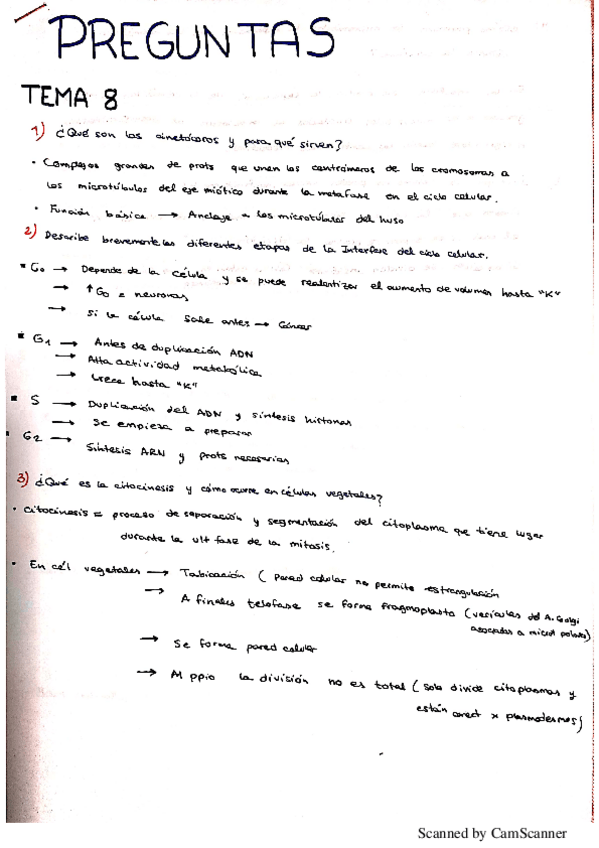 PREGUNTAS
TEMA 8
1) ¿Qué son los cinetócoros y para qué sirven?
• Complejos grandes de prots que unen los centrómeros de los cromosomas a
los microtúbulos del eje mitótico durante la metafase en el ciclo celular.
• Función básica → Anclaje a los microtúbulos del huso
2) Describe brevemente las diferentes etapas de la Interfase del ciclo celular.
▪ G0 → Depende de la célula y se puede realantizar el aumento de volumen hasta "K"
→ ↑ G0 = neuronas
→ Si la célula sale antes → Cáncer
▪ G1 → Antes de duplicación ADN
→ Alta actividad metabólica
→ Crece hasta "K"
▪ S → Duplicación del ADN y síntesis histonas
→ Se empieza a preparar
▪ G2 → Síntesis ARN y prots necesarias
3) ¿Qué es la citocinesis y cómo ocurre en células vegetales?
• Citocinesis = proceso de separación y segmentación del citoplasma que tiene lugar
durante la ult fase de la mitosis.
• En cél vegetales → Tabicación ( pared celular no permite estrangulación
→ A finales telofase se forma fragmoplasto (vesículas del A. Golgi
asociadas a microt polares)
→ Se forma pared celular
→ Al ppio la división no es total ( solo divide citoplasmas y
están conect x plasmodesmos)
Scanned by CamScanner